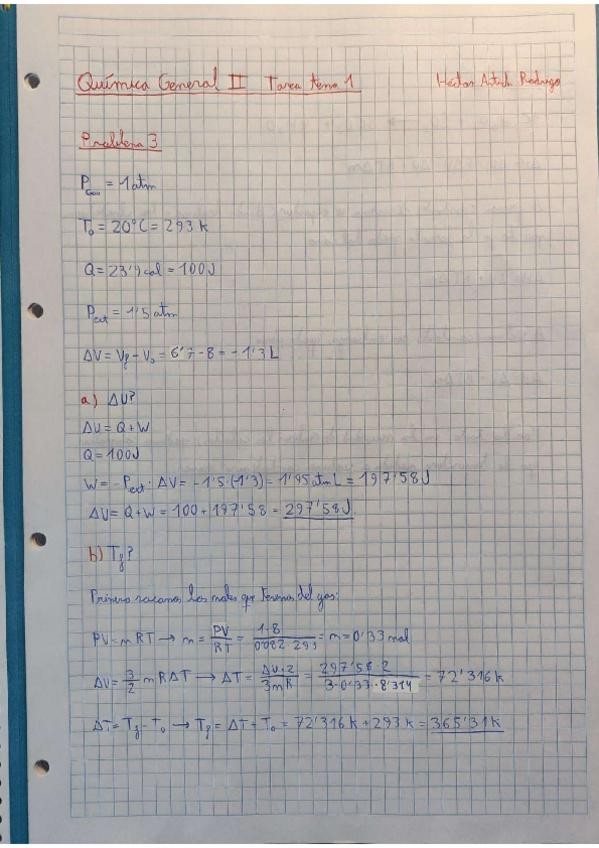 Química General II Tarea tema 1 Hector Rodrigo
Problema 3
P = 1 atm
T₀ = 20°C = 293 K
Q = 23'9 cal = 100 J
Pext = 1'5 atm
ΔV = Vf - V₀ = 6'7 - 8 = - 1'3 L
a) ΔU?
ΔU = Q + W
Q = 100J
W = - Pext · ΔV = - 1'5 · (-1'3) = 1'95 atm L = 197'58 J
ΔU = Q + W = 100 + 197'58 = 297'58 J.
b) Tf?
Primero sacamos los moles que tenemos del gas:
PV = nRT → n = PV/RT = 1·8/0'082·293 = n = 0'33 mol
ΔU = 3/2 nRΔT → ΔT = ΔU·2/3nR = 297'58·2/3·0'33·8'314 = 72'316 K
ΔT = Tf - T₀ → Tf = ΔT + T₀ = 72'316 K + 293 K = 365'31 K